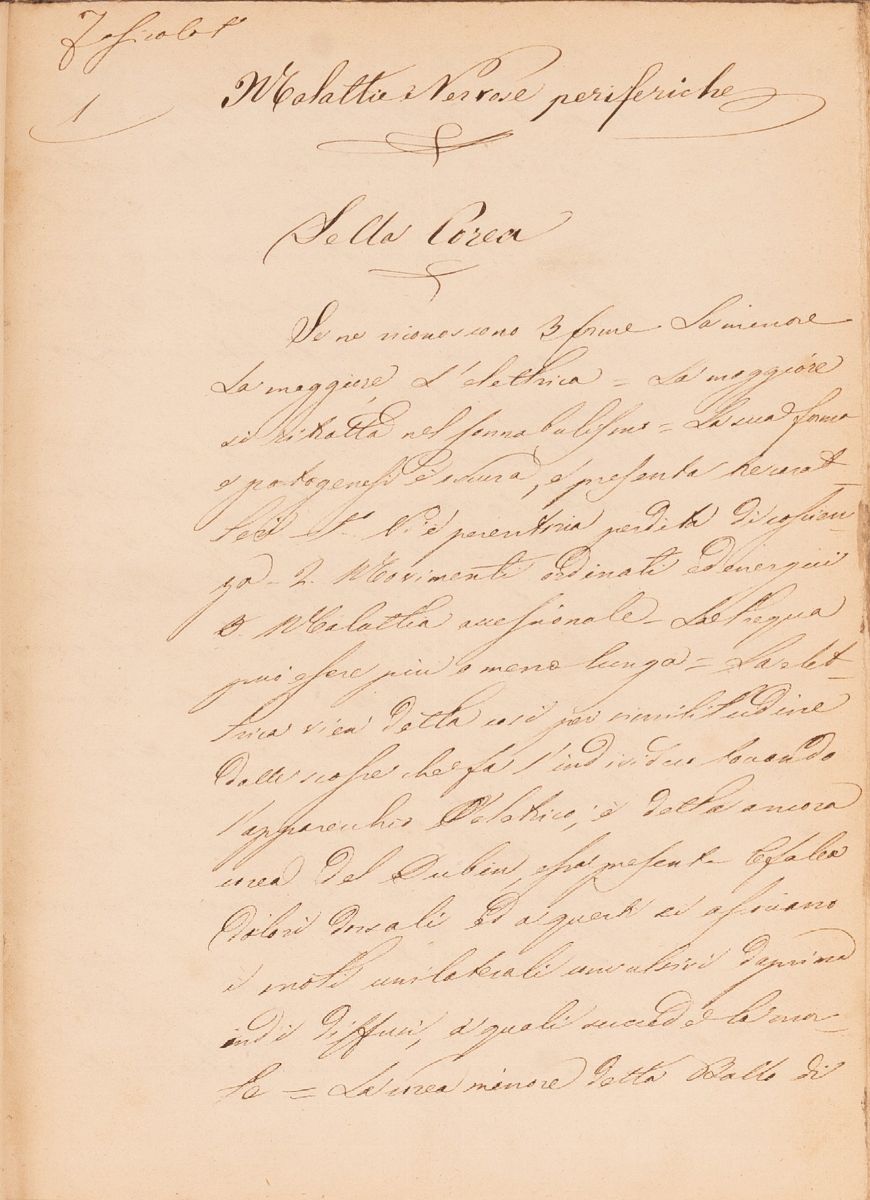 Fascicolo 1°
1
Malattie Nervose periferiche
Della Corea
Se ne riconoscono 3 forme La minore
La maggiore L'elettrica = La maggiore
si ritratta nel sonnabulismo = La sua forma
e patogenesi è oscura, e presenta tre carat-
teri 1° Vi è perdita di coscien-
za - 2. Movimenti ordinati ed energici
3. Malattia accessionale - La tregua
può essere più o meno lunga = La elet-
trica vien detta così per similitudine
dalle scosse che fa l'individuo toccando
l'apparecchio elettrico; è detta ancora
corea del Dubin, essa presenta Cefalea
dolori dorsali ed a questi si associano
i moti unilaterali convulsivi dapprima
indi diffusi, a quali succede la mor-
te = La corea minore detta Ballo di